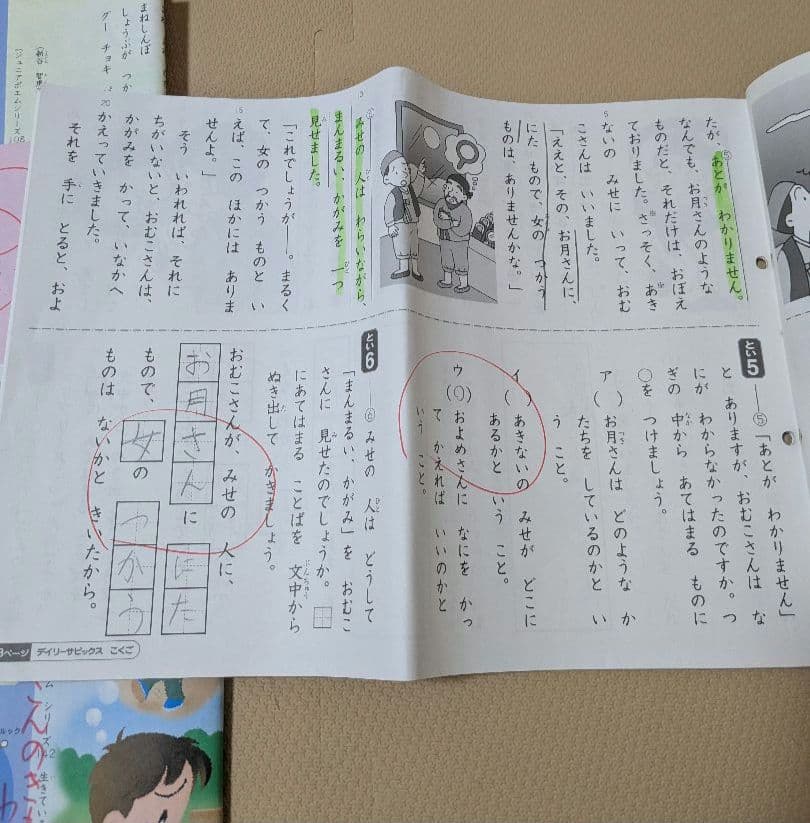 たが あとが わかりません。
なんでも、お月さんのような
ものだと、それだけは、おぼえ
ておりました。さっそく、あき
ないの みせに いって、おむ
こさんは いいました。
「ええと、その、お月さんに、
にた もので、女の つかう
ものは、ありませんかな。」
みせの 人は わらいながら、
まんまるい、かがみを 一つ
見せました。
「これでしょうが――。まるく
て、女の つかう ものと い
えば、この ほかには ありま
せんよ。」
そう いわれれば、それに
ちがいないと、おむこさんは、
かがみを かって、いなかへ
かえっていきました。
それを 手に とると、およ
とい5
⑤「あとが わかりません」
と ありますが、おむこさんは な
にが わからなかったのですか。つ
ぎの 中から あてはまる ものに
○を つけましょう。
ア( )お月さんは どのような か
たちを しているのかと い
う こと。
イ( )あきないの みせが どこに
あるかと いう こと。
ウ(○)およめさんに なにを かっ
て かえれば いいのかと
いう こと。
とい6
⑥ みせの 人は どうして
「まんまるい、かがみ」を おむこ
さんに 見せたのでしょうか。
にあてはまる ことばを 文中から
ぬき出して かきましょう。
おむこさんが、みせの 人に、
お月さんに にた
もので、女の つかう
ものは ないかと きいたから。
ページ デイリーサピックス こくご
まねしんぼ
しょうぶが つか
グー チョキ
ジュニアポエムシリーズ
シリーズ
生きてい
さんのき